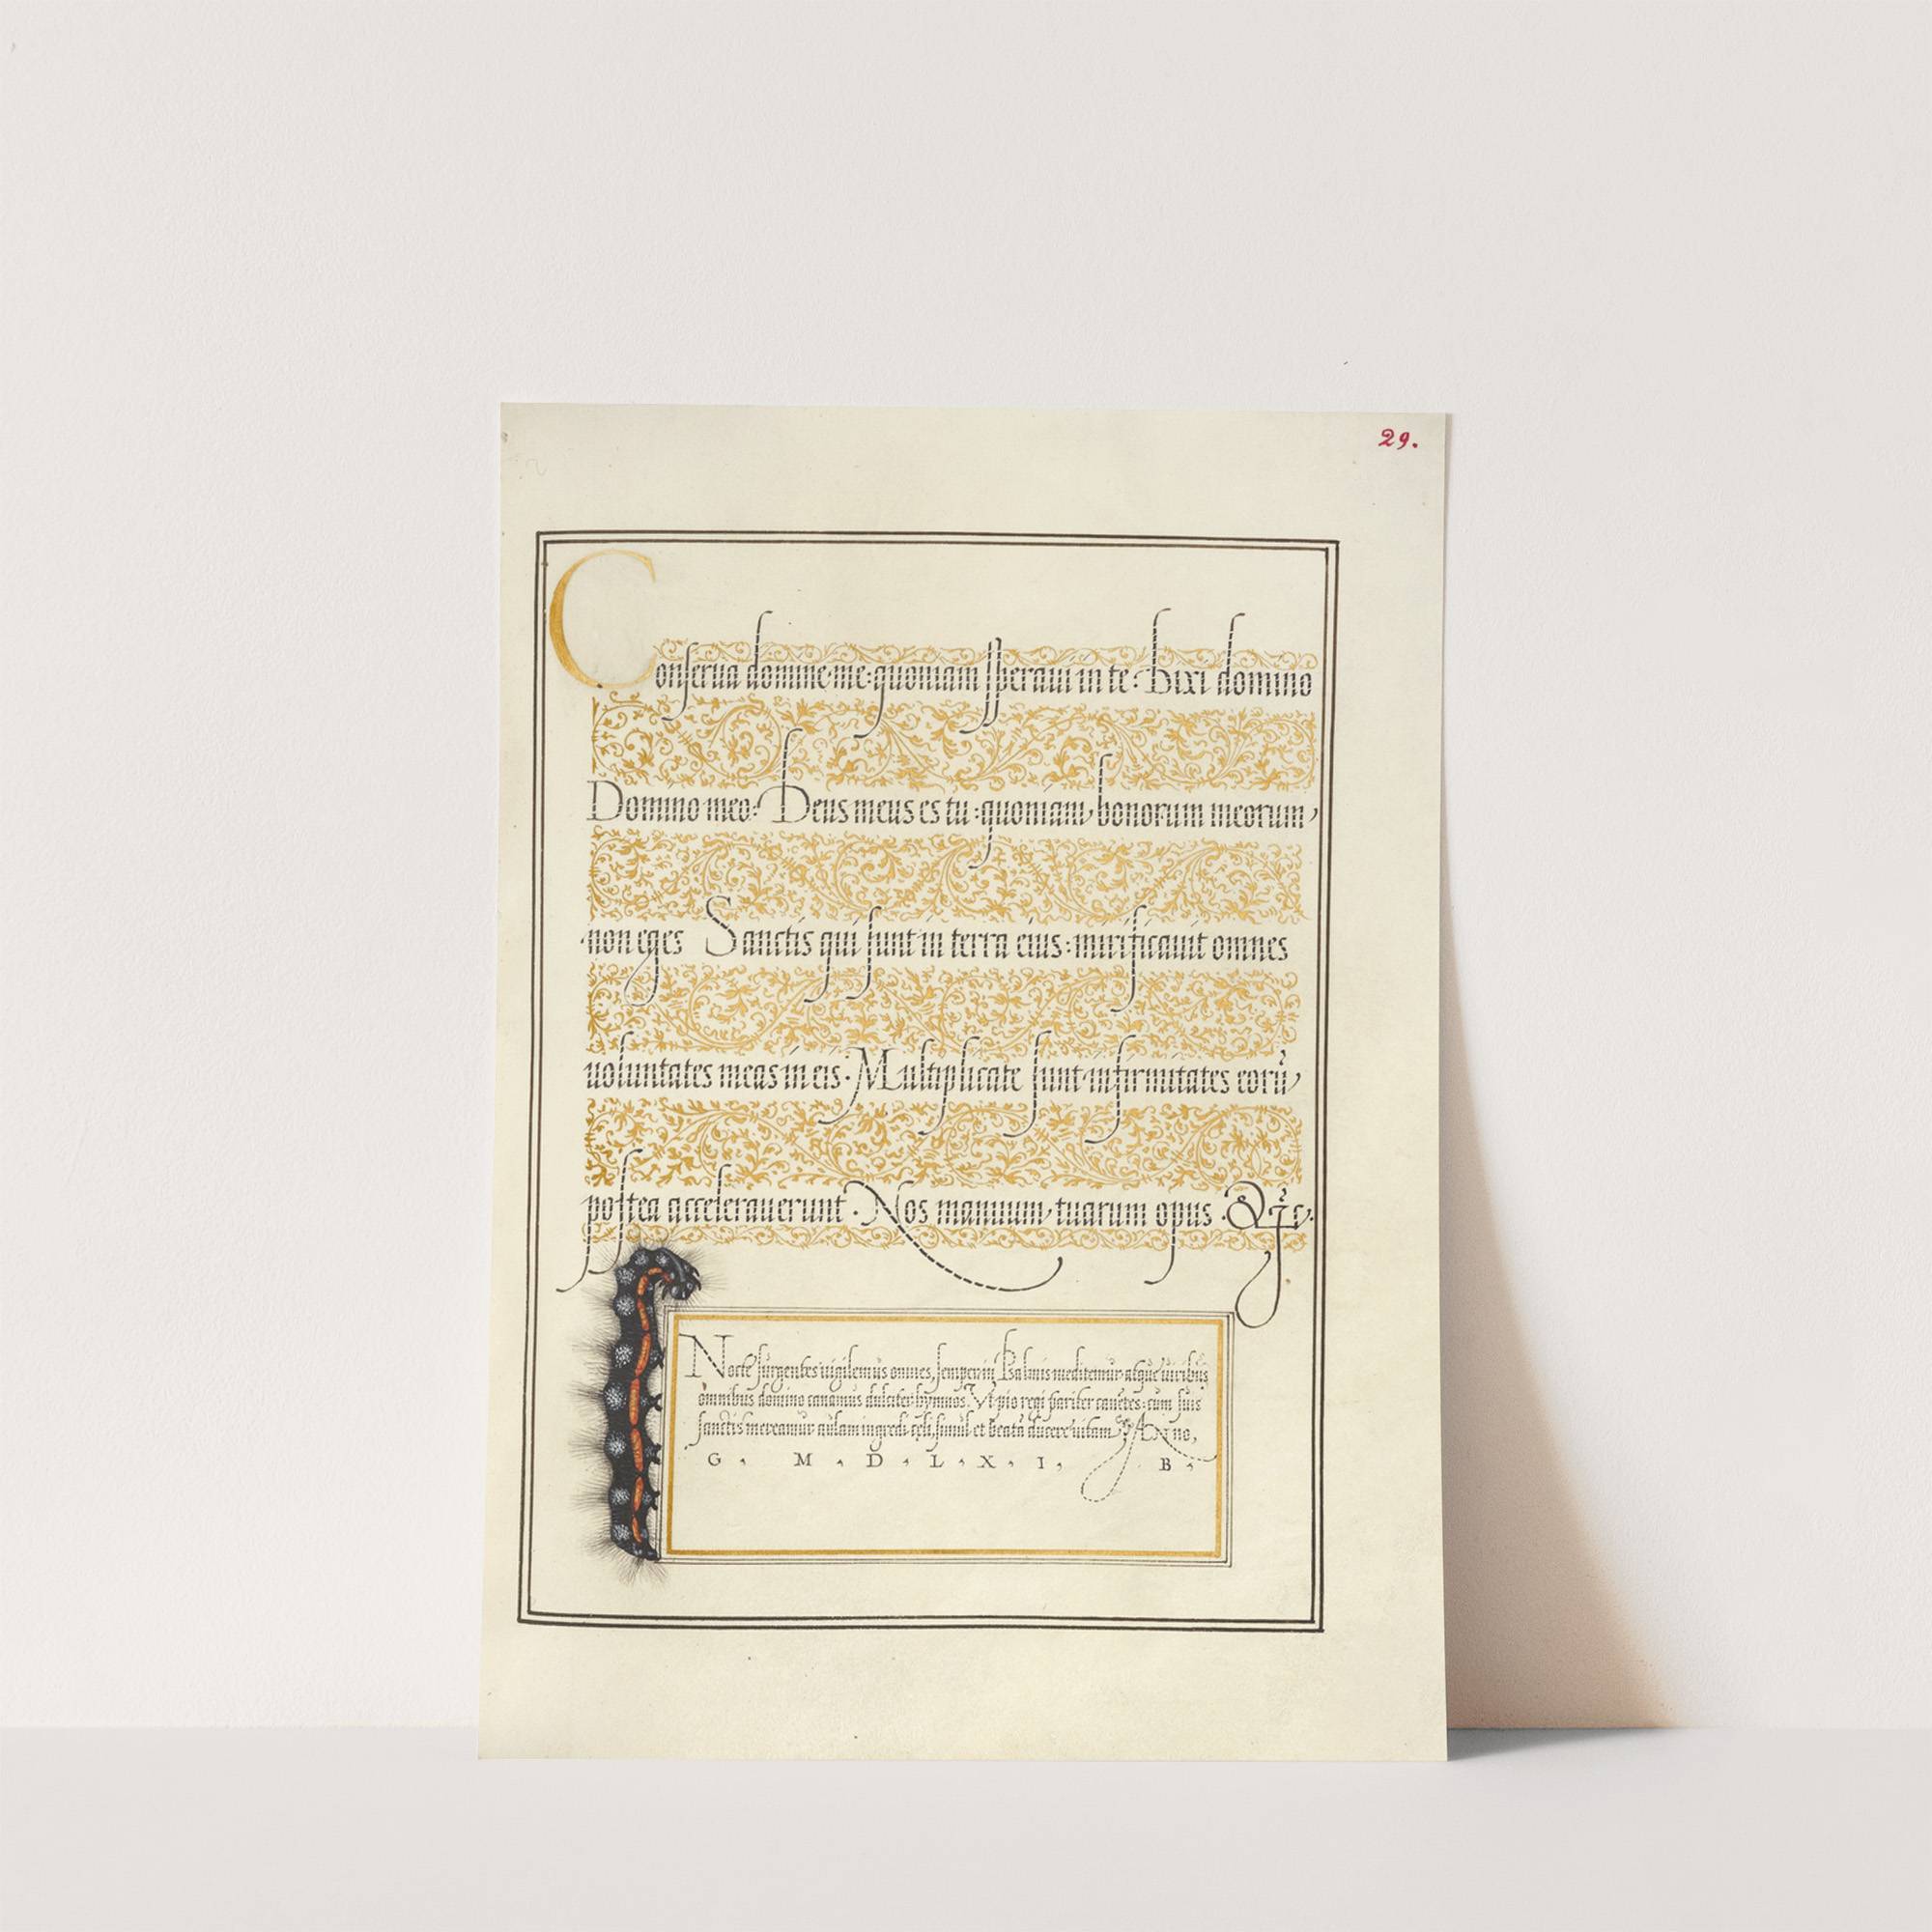 29.
Conserua domine me: quoniam speraui in te: Dixi domino
Domino meo: Deus meus es tu: quoniam bonorum meorum
non eges Sanctis qui sunt in terra eius: mirificauit omnes
uoluntates meas in eis. Multiplicate sunt infirmitates eorū
postea accelerauerunt. Nos manuum tuarum opus.
Nocte surgentes uigilemus omnes, semper in Psalmis meditemur atque uiribus
omnibus domino canamus dulciter hymnos. Vt pio regi pariter canētes: cum suis
sanctis mereamur aulam ingredi cęli, simul et beatā ducere uitam. ANno,
G, M, D, L, X, I, B,